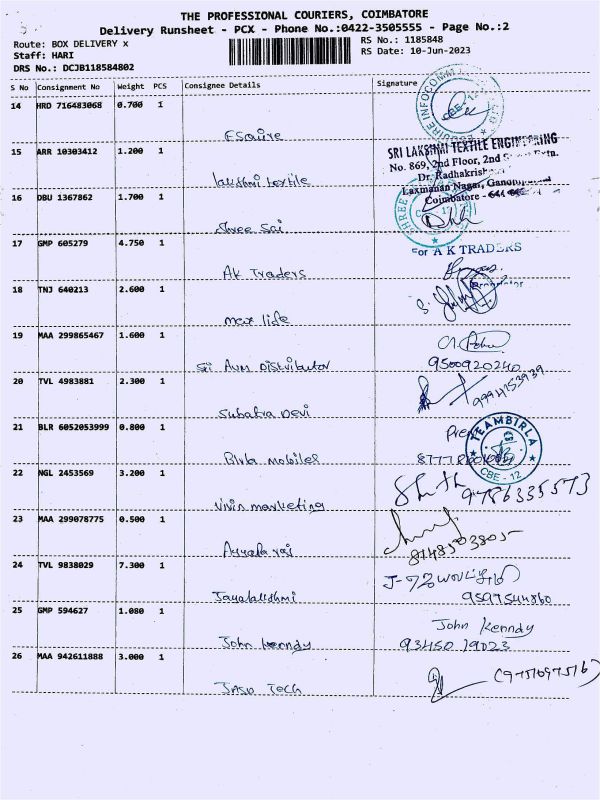 THE PROFESSIONAL COURIERS, COIMBATORE
Delivery Runsheet - PCX - Phone No.:0422-3505555 - Page No.:2
Route: BOX DELIVERY x
Staff: HARI
DRS No.: DCJB118584802
RS No.: 1185848
RS Date: 10-Jun-2023
S No Consignment No Weight PCS Consignee Details Signature
14 HRD 716483068 0.700 1
Esquire
15 ARR 10303412 1.200 1
SRI LAKSHMI TEXTILE ENGINEERING
No. 869, 2nd Floor, 2nd Extn.
Dr. Radhakrish
Laxmanan Nagar,
Coimbatore -
lakshmi textile
16 DBU 1367862 1.700 1
SHREE
Shree Sai
17 GMP 605279 4.750 1
For A K TRADERS
Proprietor
AK Traders
18 TNJ 640213 2.600 1
max life
19 MAA 299865467 1.600 1
Sri Avm Distributor
9500920240
20 TVL 4983881 2.300 1
9994153939
Subatra Devi
21 BLR 6052053999 0.800 1
TEAMBIRLA
CBE - 12
Birla mobiles
22 NGL 2453569 3.200 1
9786335573
vivin marketing
23 MAA 299078775 0.500 1
8148503805
24 TVL 9838029 7.300 1
Jayalakshmi
9597544860
25 GMP 594627 1.080 1
John Kenndy
John Kenndy
93450 19023
26 MAA 942611888 3.000 1
(9751097516)
JASU TECH